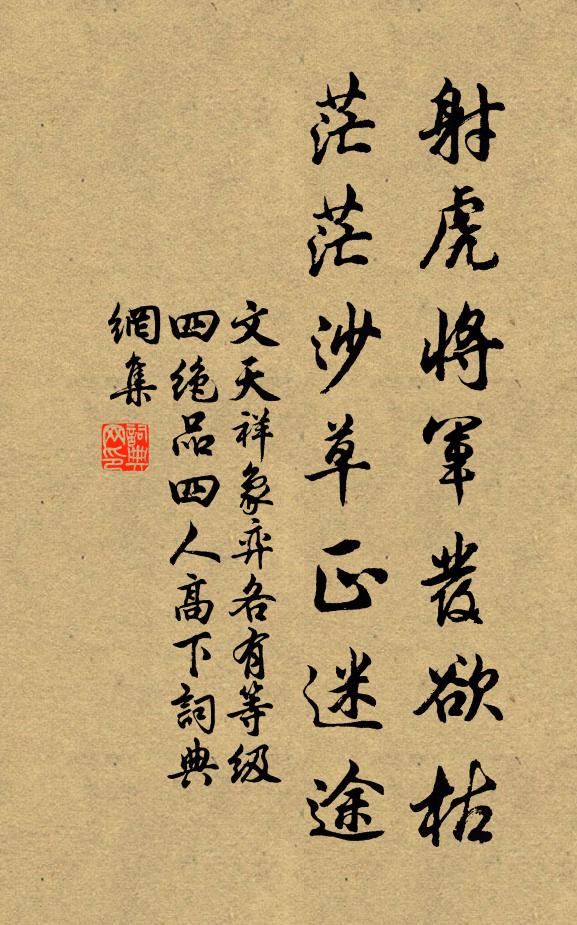 射虎將軍發欲枯
茫茫沙草正迷途
文天祥象弈各有等級
四絶品四人高下詞典
網集
詞典網印